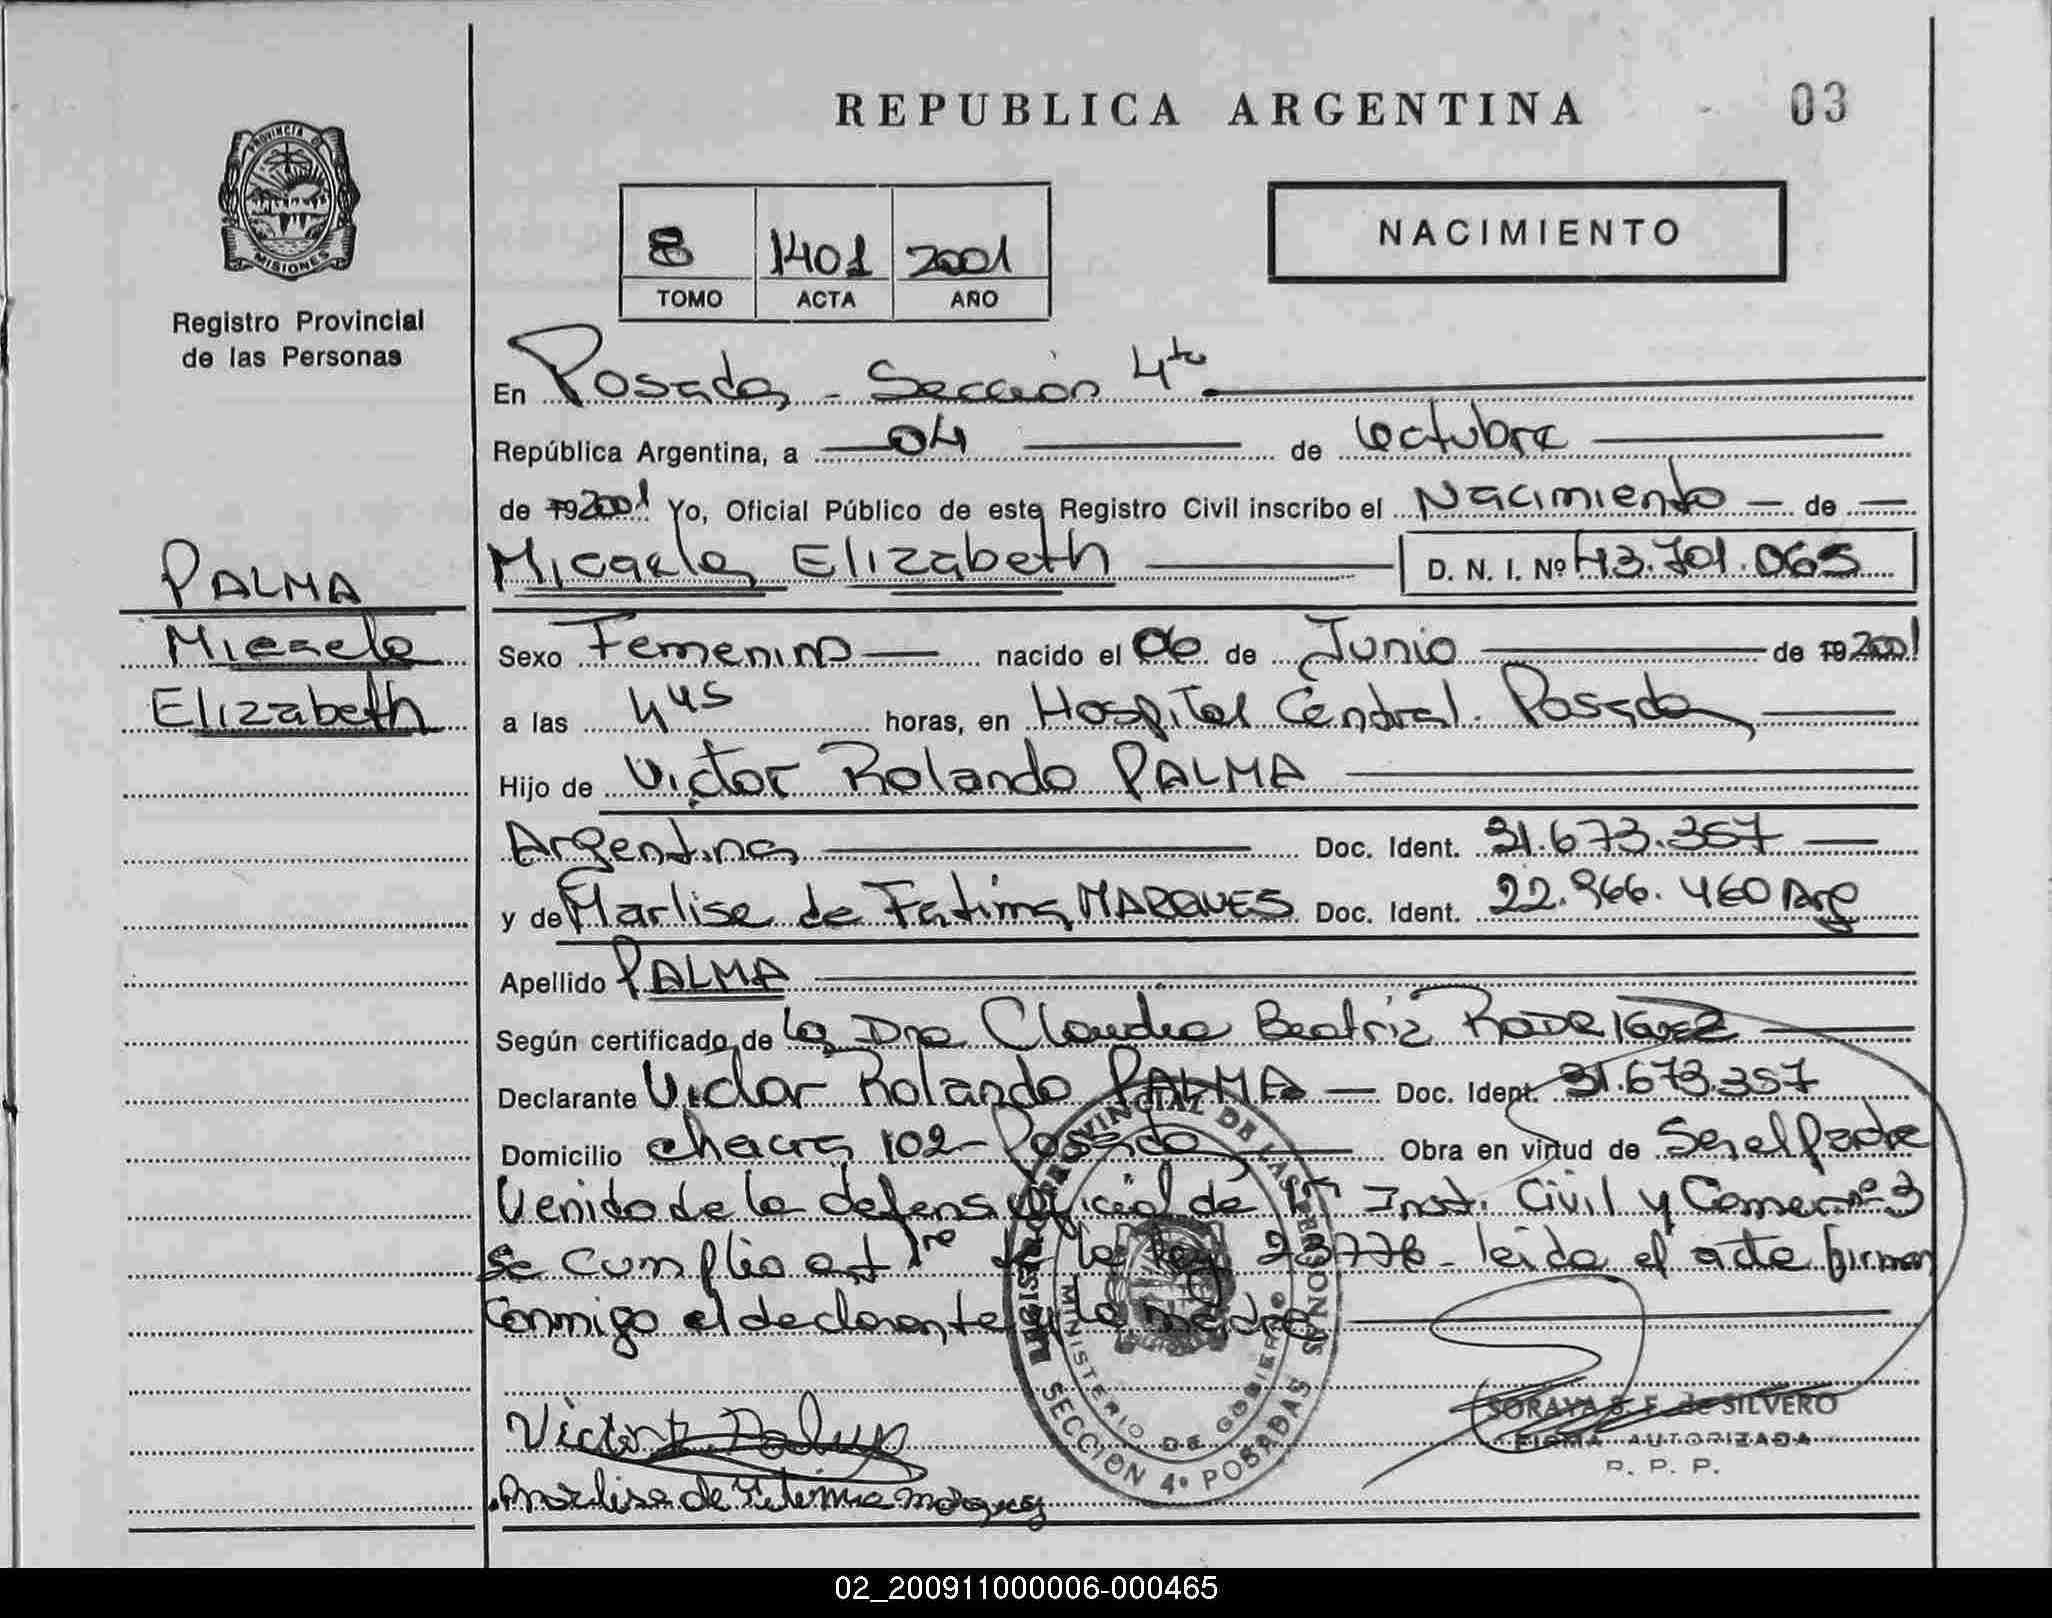 REPUBLICA ARGENTINA 03
PROVINCIA DE
MISIONES
Registro Provincial
de las Personas
8 1401 2001
TOMO ACTA AÑO
NACIMIENTO
En Posadas - Sección 4ta
República Argentina, a 04 de octubre
de 19 2001 Yo, Oficial Público de este Registro Civil inscribo el Nacimiento de
Micaela Elizabeth D. N. I. Nº 43.701.065
PALMA
Micaela
Elizabeth
Sexo Femenino nacido el 06 de Junio de 19 2001
a las 4 45 horas, en Hospital Central. Posadas
Hijo de Victor Rolando PALMA
Argentina Doc. Ident. 31.673.357
y de Marlise de Fatima MARQUES Doc. Ident. 22.966.460 Arg
Apellido PALMA
Según certificado de la Dra Claudia Beatriz RODRIGUEZ
Declarante Victor Rolando PALMA Doc. Ident. 31.673.357
Domicilio chacra 102 - Posadas Obra en virtud de Ser el padre
Venido de la defens oficial de 1ra Inst. Civil y Comer nº 3
Se cumplio art 1re de la ley 23776 - leida el acta firman
Conmigo el declarante y la madre
REGISTRO PROVINCIAL DE LAS PERSONAS
MINISTERIO DE GOBIERNO
SECCION 4º POSADAS
Victor R. Palma
Marlise de Fatima Marques
SORAYA S. F. de SILVERO
FIRMA AUTORIZADA
R. P. P.
02_200911000006-000465